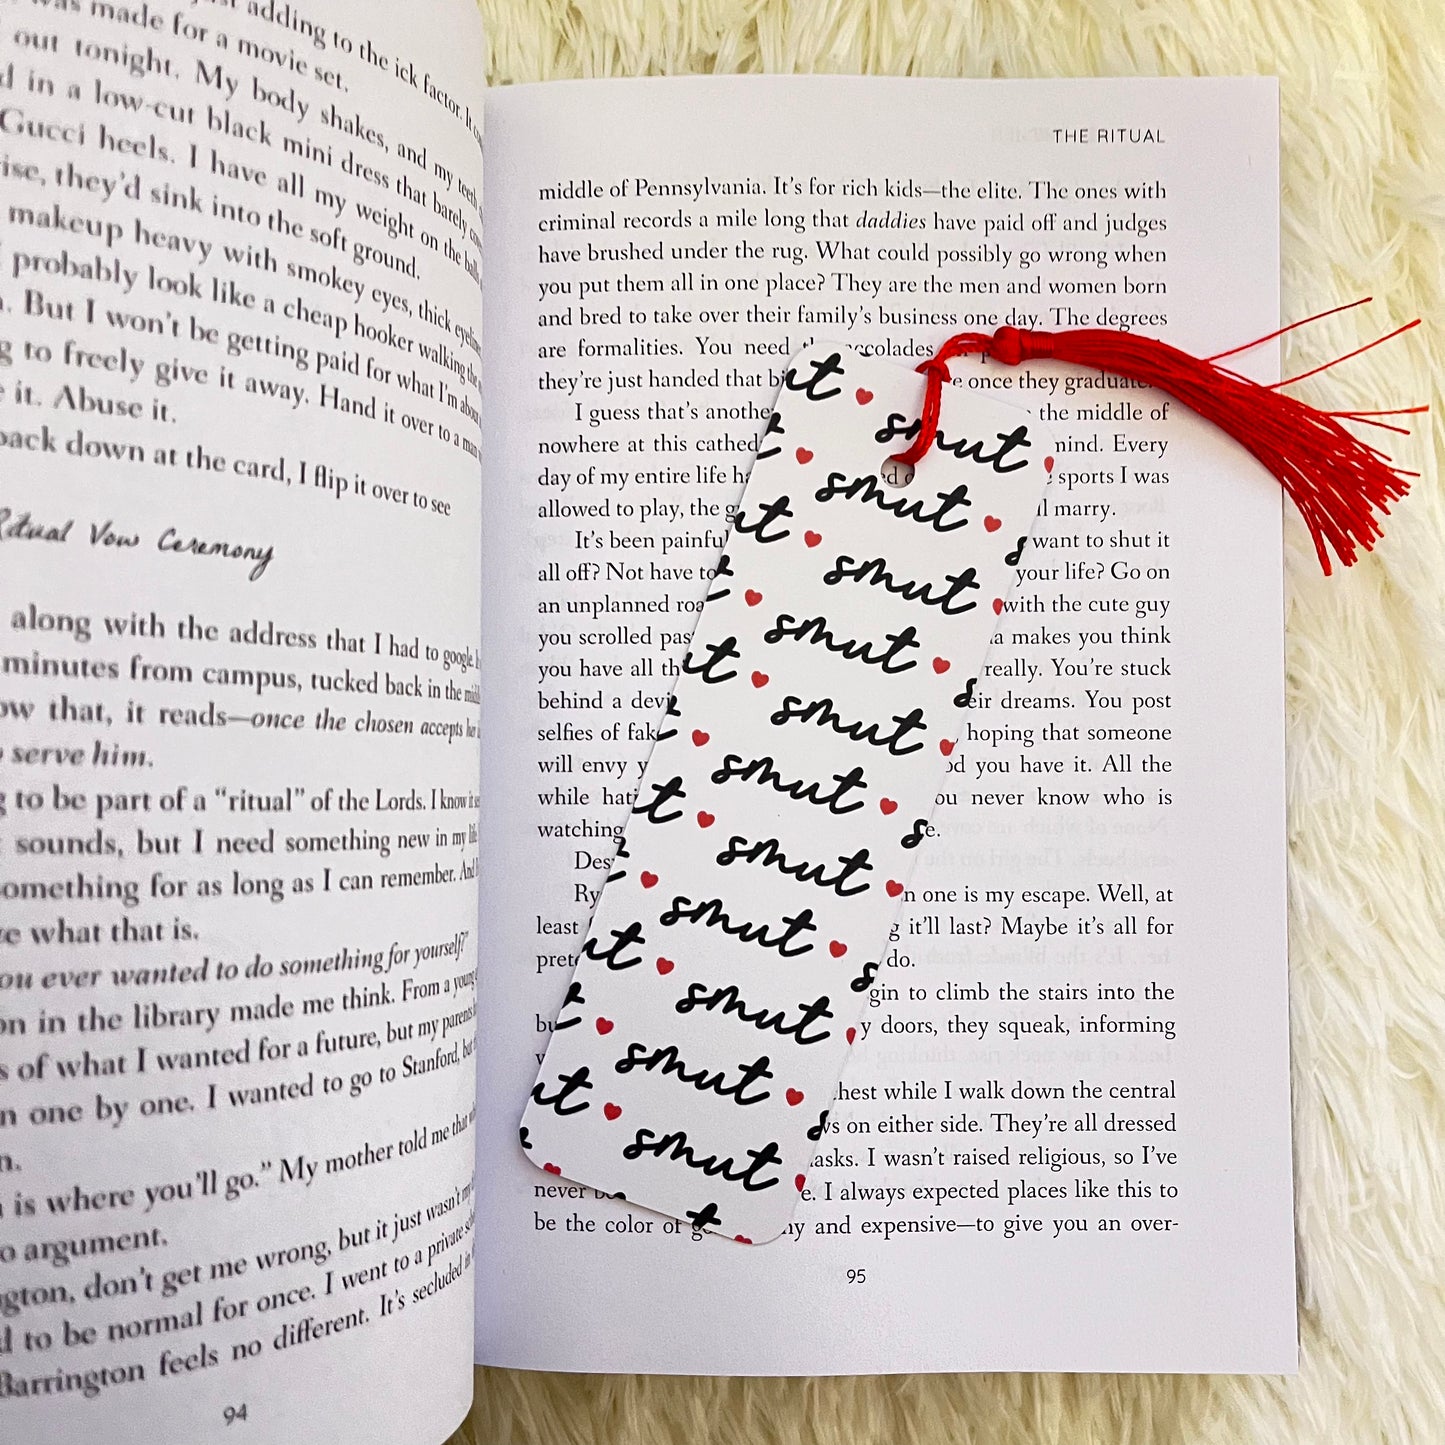 just adding to the ick factor. It
was made for a movie set.
out tonight. My body shakes, and my teeth
in a low-cut black mini dress that barely
Gucci heels. I have all my weight on the balls
they'd sink into the soft ground.
makeup heavy with smokey eyes, thick
probably look like a cheap hooker walking the
But I won't be getting paid for what I'm
to freely give it away. Hand it over to a man
it. Abuse it.
back down at the card, I flip it over to see
Ritual Vow Ceremony
along with the address that I had to google.
minutes from campus, tucked back in the
that, it reads—once the chosen accepts
serve him.
to be part of a “ritual” of the Lords. I know it
sounds, but I need something new in my
something for as long as I can remember. And
what that is.
ever wanted to do something for yourself?”
in the library made me think. From a young
of what I wanted for a future, but my parents
one by one. I wanted to go to Stanford, but
is where you'll go.” My mother told me that
argument.
don't get me wrong, but it just wasn't my
to be normal for once. I went to a private
Barrington feels no different. It's secluded in
94
THE RITUAL
middle of Pennsylvania. It's for rich kids—the elite. The ones with
criminal records a mile long that daddies have paid off and judges
have brushed under the rug. What could possibly go wrong when
you put them all in one place? They are the men and women born
and bred to take over their family's business one day. The degrees
are formalities. You need
they're just handed that once they graduate.
I guess that's the middle of
nowhere at this mind. Every
day of my entire life sports I was
allowed to play, the marry.
It's been want to shut it
all off? Not have to your life? Go on
an unplanned with the cute guy
you scrolled makes you think
you have all really. You're stuck
behind a dreams. You post
selfies of hoping that someone
will envy you have it. All the
while you never know who is
watching
one is my escape. Well, at
least it'll last? Maybe it's all for
do.
to climb the stairs into the
doors, they squeak, informing
while I walk down the central
on either side. They're all dressed
I wasn't raised religious, so I've
never I always expected places like this to
be the color of and expensive—to give you an over-
95
smut
smut
smut
smut
smut
smut
smut
smut
smut
smut
smut